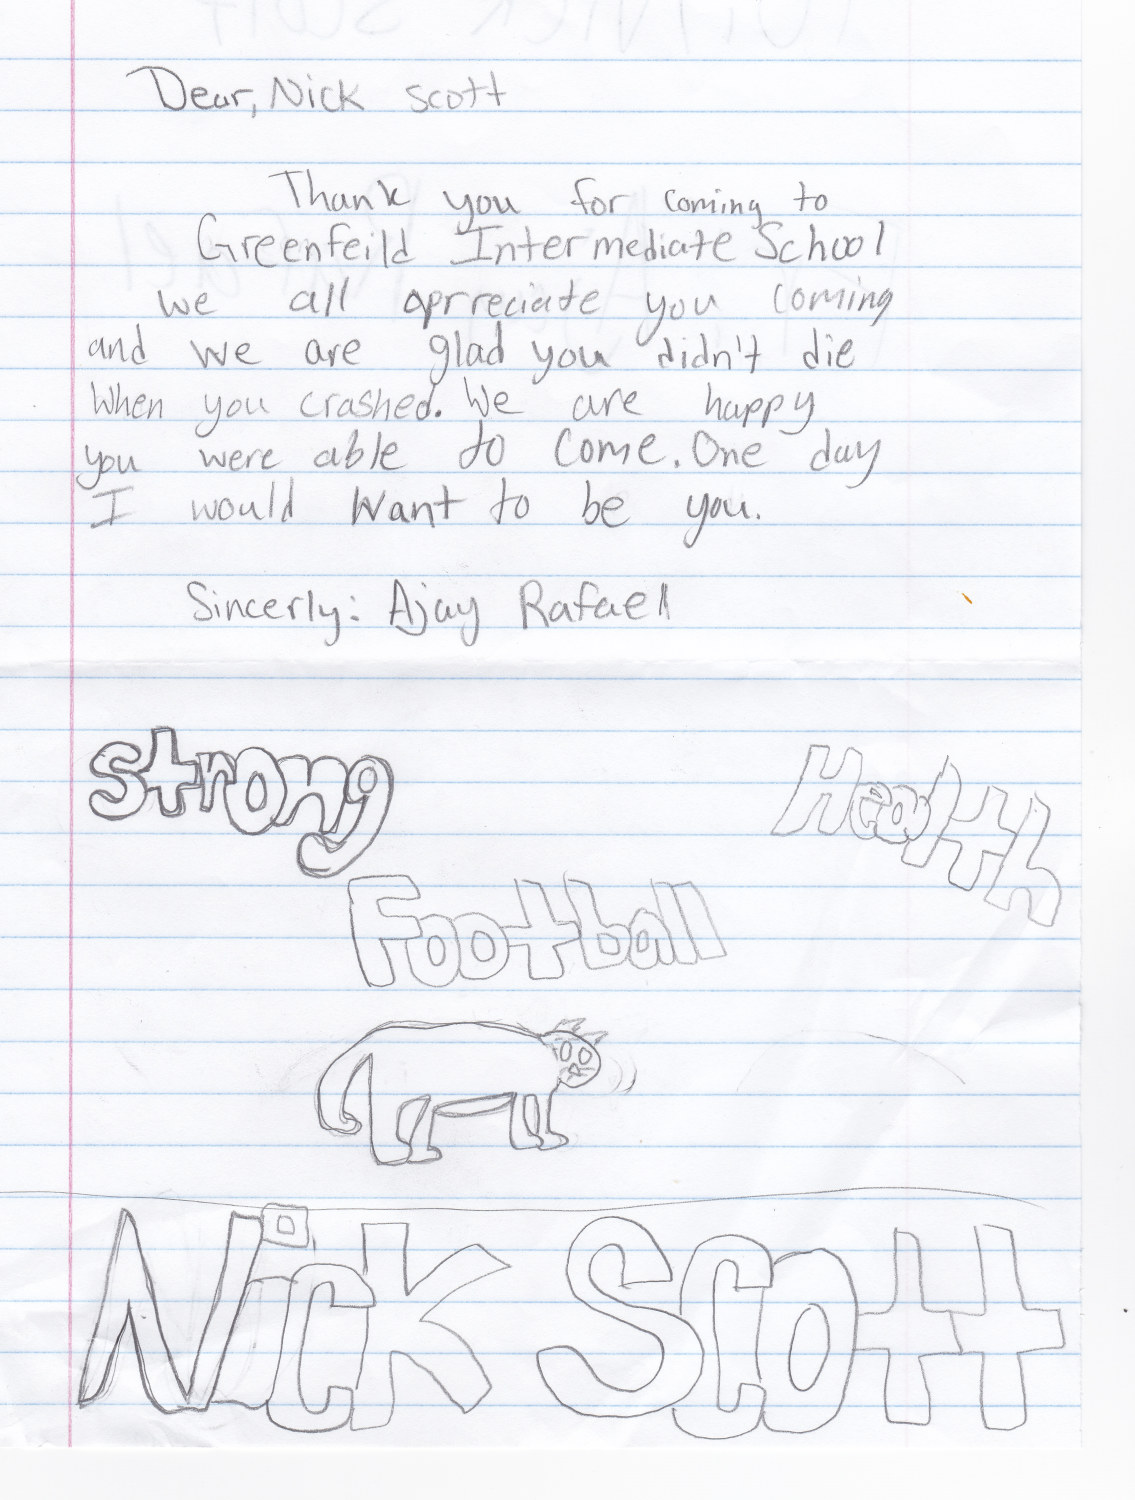 Dear, Nick scott
Thank you for coming to
Greenfeild Intermediate School
we all apreciate you coming
and we are glad you didn't die
When you crashed. We are happy
you were able to come. One day
I would want to be you.
Sincerly: Ajay Rafael
Strong
Health
Football
Nick Scott